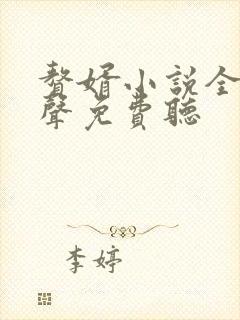 贅婿小說全
聲免費聽
李婷